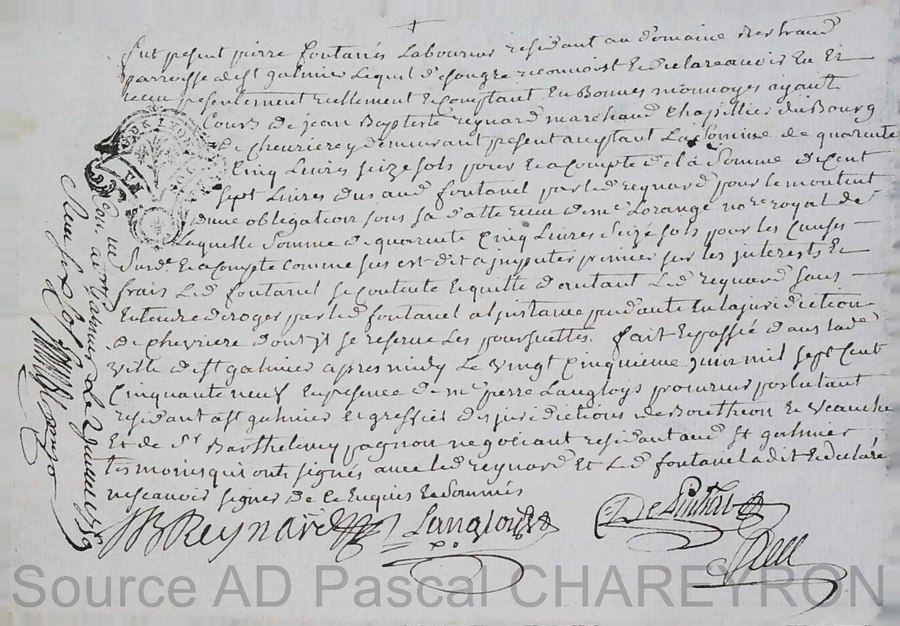 fut pesent pierre fontanés Laboureur residant au domaine
parroisse de st galmier Lequel de son gre reconnoist et declare avoir
receu presentement réellement et comptant En Bonnes monnoyes ayant
Cours de jean Baptiste reynard marchand Chapillier du Bourg
de chevriere y demeurant pesent acceptant La somme de quarente
Cinq Livres seize sols pour et a compte de la somme de Cent
sept Livres dus aud fontanel par led reynard pour le montent
d'une obligation sous sa datte receu de me Lorange nore royal de
Laquelle somme de quarente Cinq Livres seize sols pour les Causes
Surd. et a compte comme sus est dit a imputer premier sur les interests et
frais Led fontanel se contente et quitte d'autant led reynard sans
Entendre deroger par led fontanel a l'instance pendante en la juridiction
de chevriere dont il se reserve Les poursuittes. fait et passé dans lade
ville de st galmier apres midy Le vingt Cinquieme mil sept Cent
Cinquante neuf En presence de me pierre Langloys procureur postulant
residant a st galmier et greffier des juridictions de Boutheon et Veauche
Et de Sr Barthelemy pagnon negotiant residant aud st galmier
temoins qui ont signés avec led reynard Et Led fontanel a dit et declaré
ne scavoir signer de ce Enquis et Sommés
JB Reynard Langloys
Con. a st galmier Le 1759
Source AD Pascal CHAREYRON